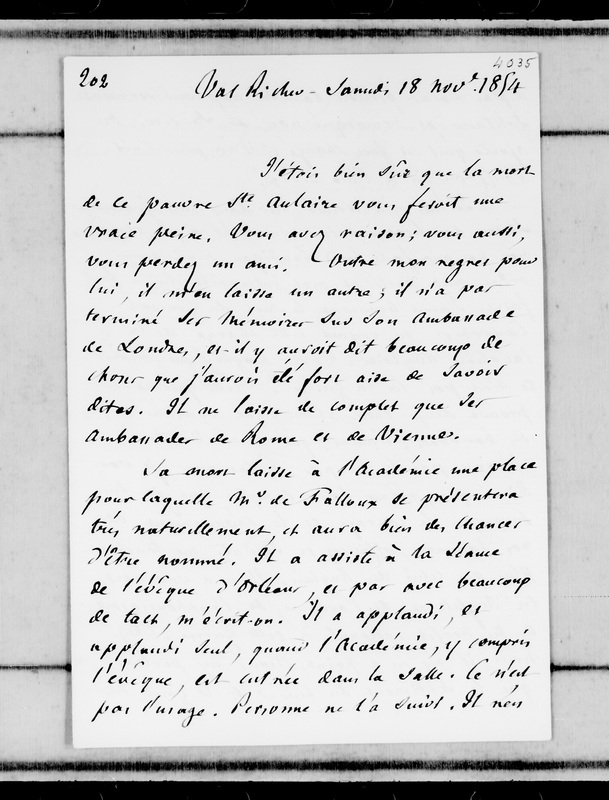 202
4035
Val Richer - Samedi 18 Nov.e 1854
J'étois bien sûr que la mort
de ce pauvre Ste Aulaire vous feroit une
vraie peine. Vous avez raison ; vous aussi,
vous perdez un ami. Outre mon regret pour
lui, il m'en laisse un autre ; il n'a pas
terminé ses Mémoires sur son ambassade
de Londres, et il y auroit dit beaucoup de
choses que j'aurois été fort aise de savoir
dites. Il ne laisse de complet que ses
ambassades de Rome et de Vienne.
Sa mort laisse à l'Académie une place
pour laquelle Mr. de Falloux se présentera
très naturellement, et aura bien des chances
d'être nommé. Il a assisté à la Séance
de l'évêque d'Orléans, et pas avec beaucoup
de tact, m'écrit-on. Il a applaudi, et
applaudi seul, quand l'Académie, y compris
l'évêque, est entrée dans la salle. Ce n'est
pas l'usage. Personne ne l'a suivi. Il n'en